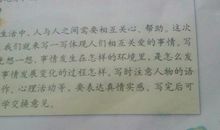 生活中,人与人之间需要相互关心、帮助。这次
我们就来写一写体现人们相互关爱的事情。写
想一想,事情发生在怎样的环境里,是怎么发
事情发展变化的过程怎样,写时注意人物的语
作、心理活动等。要表达真情实感。写完后可
学交换意见。